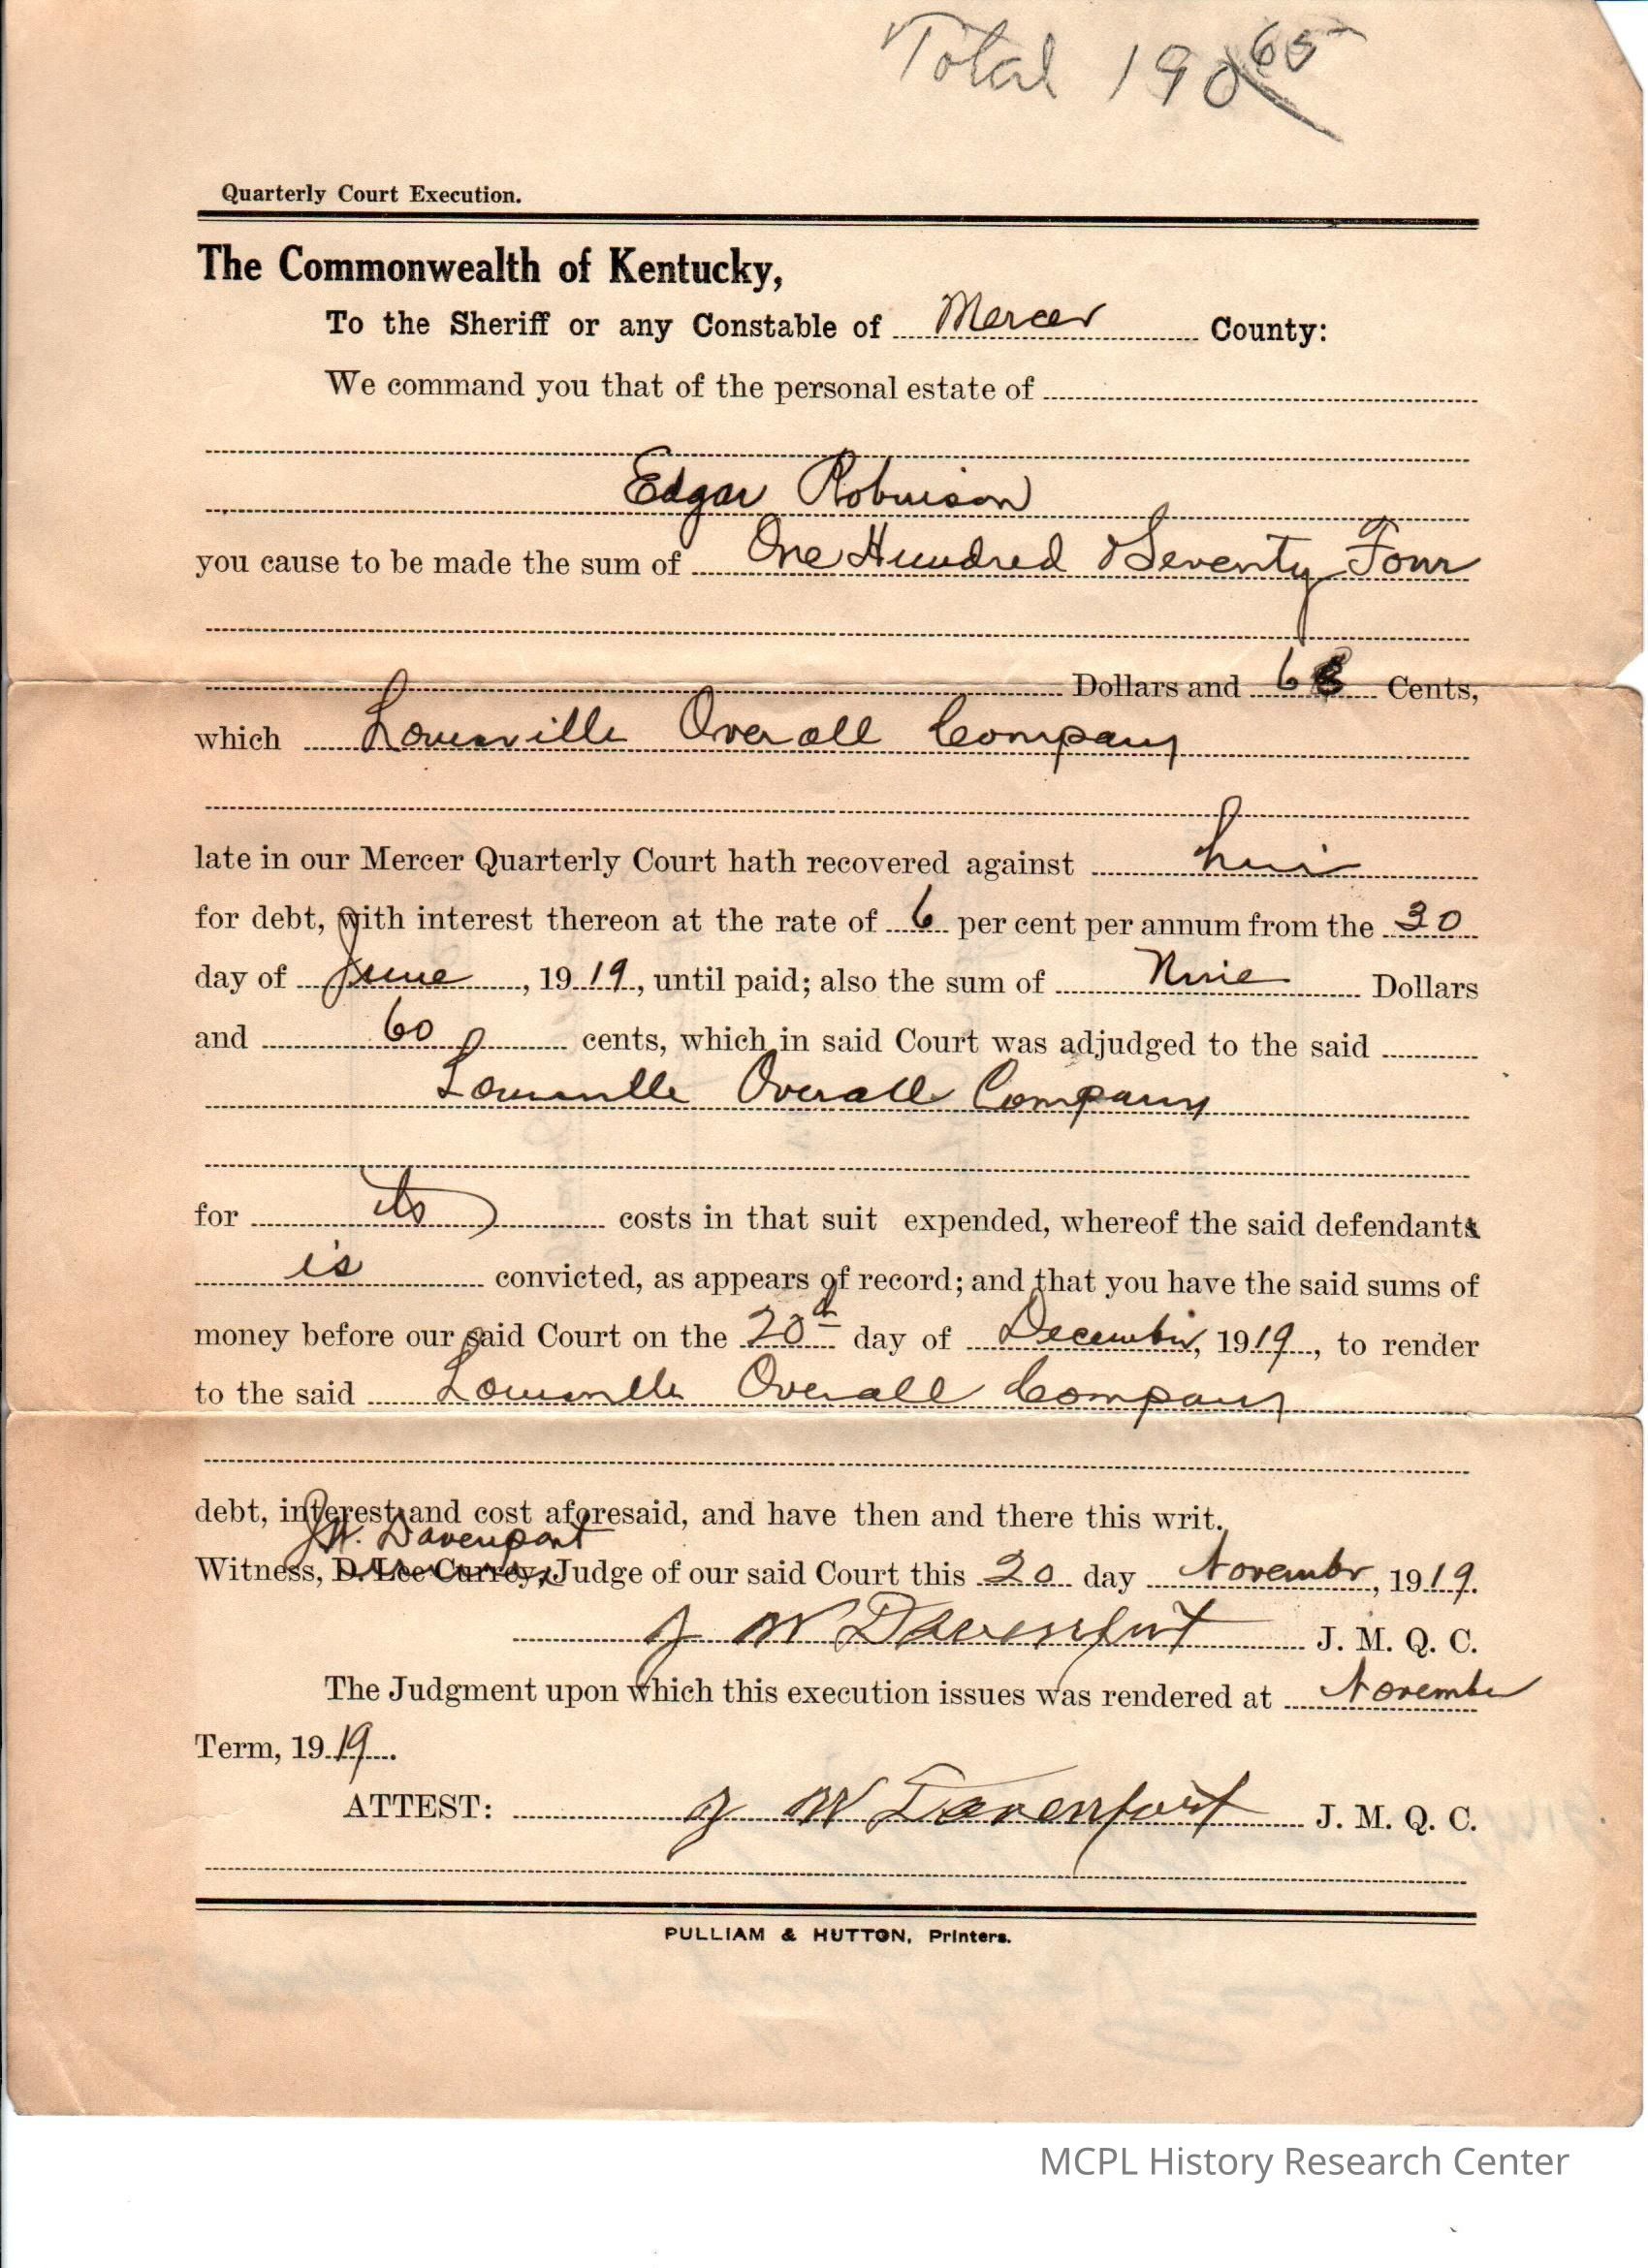 Total 190 65
Quarterly Court Execution.
The Commonwealth of Kentucky,
To the Sheriff or any Constable of Mercer County:
We command you that of the personal estate of
Edgar Robinson
you cause to be made the sum of One Hundred & Seventy Four
Dollars and 68 Cents,
which Louisville Overall Company
late in our Mercer Quarterly Court hath recovered against him
for debt, with interest thereon at the rate of 6 per cent per annum from the 30
day of June, 1919, until paid; also the sum of Nine Dollars
and 60 cents, which in said Court was adjudged to the said
Louisville Overall Company
for its costs in that suit expended, whereof the said defendant
is convicted, as appears of record; and that you have the said sums of
money before our said Court on the 20th day of December, 1919, to render
to the said Louisville Overall Company
debt, interest and cost aforesaid, and have then and there this writ.
J.W. Davenport
Witness, D. Lee Currey, Judge of our said Court this 20 day November, 1919.
J W Davenport J. M. Q. C.
The Judgment upon which this execution issues was rendered at November
Term, 1919.
ATTEST: J W Davenport J. M. Q. C.
PULLIAM & HUTTON, Printers.
MCPL History Research Center